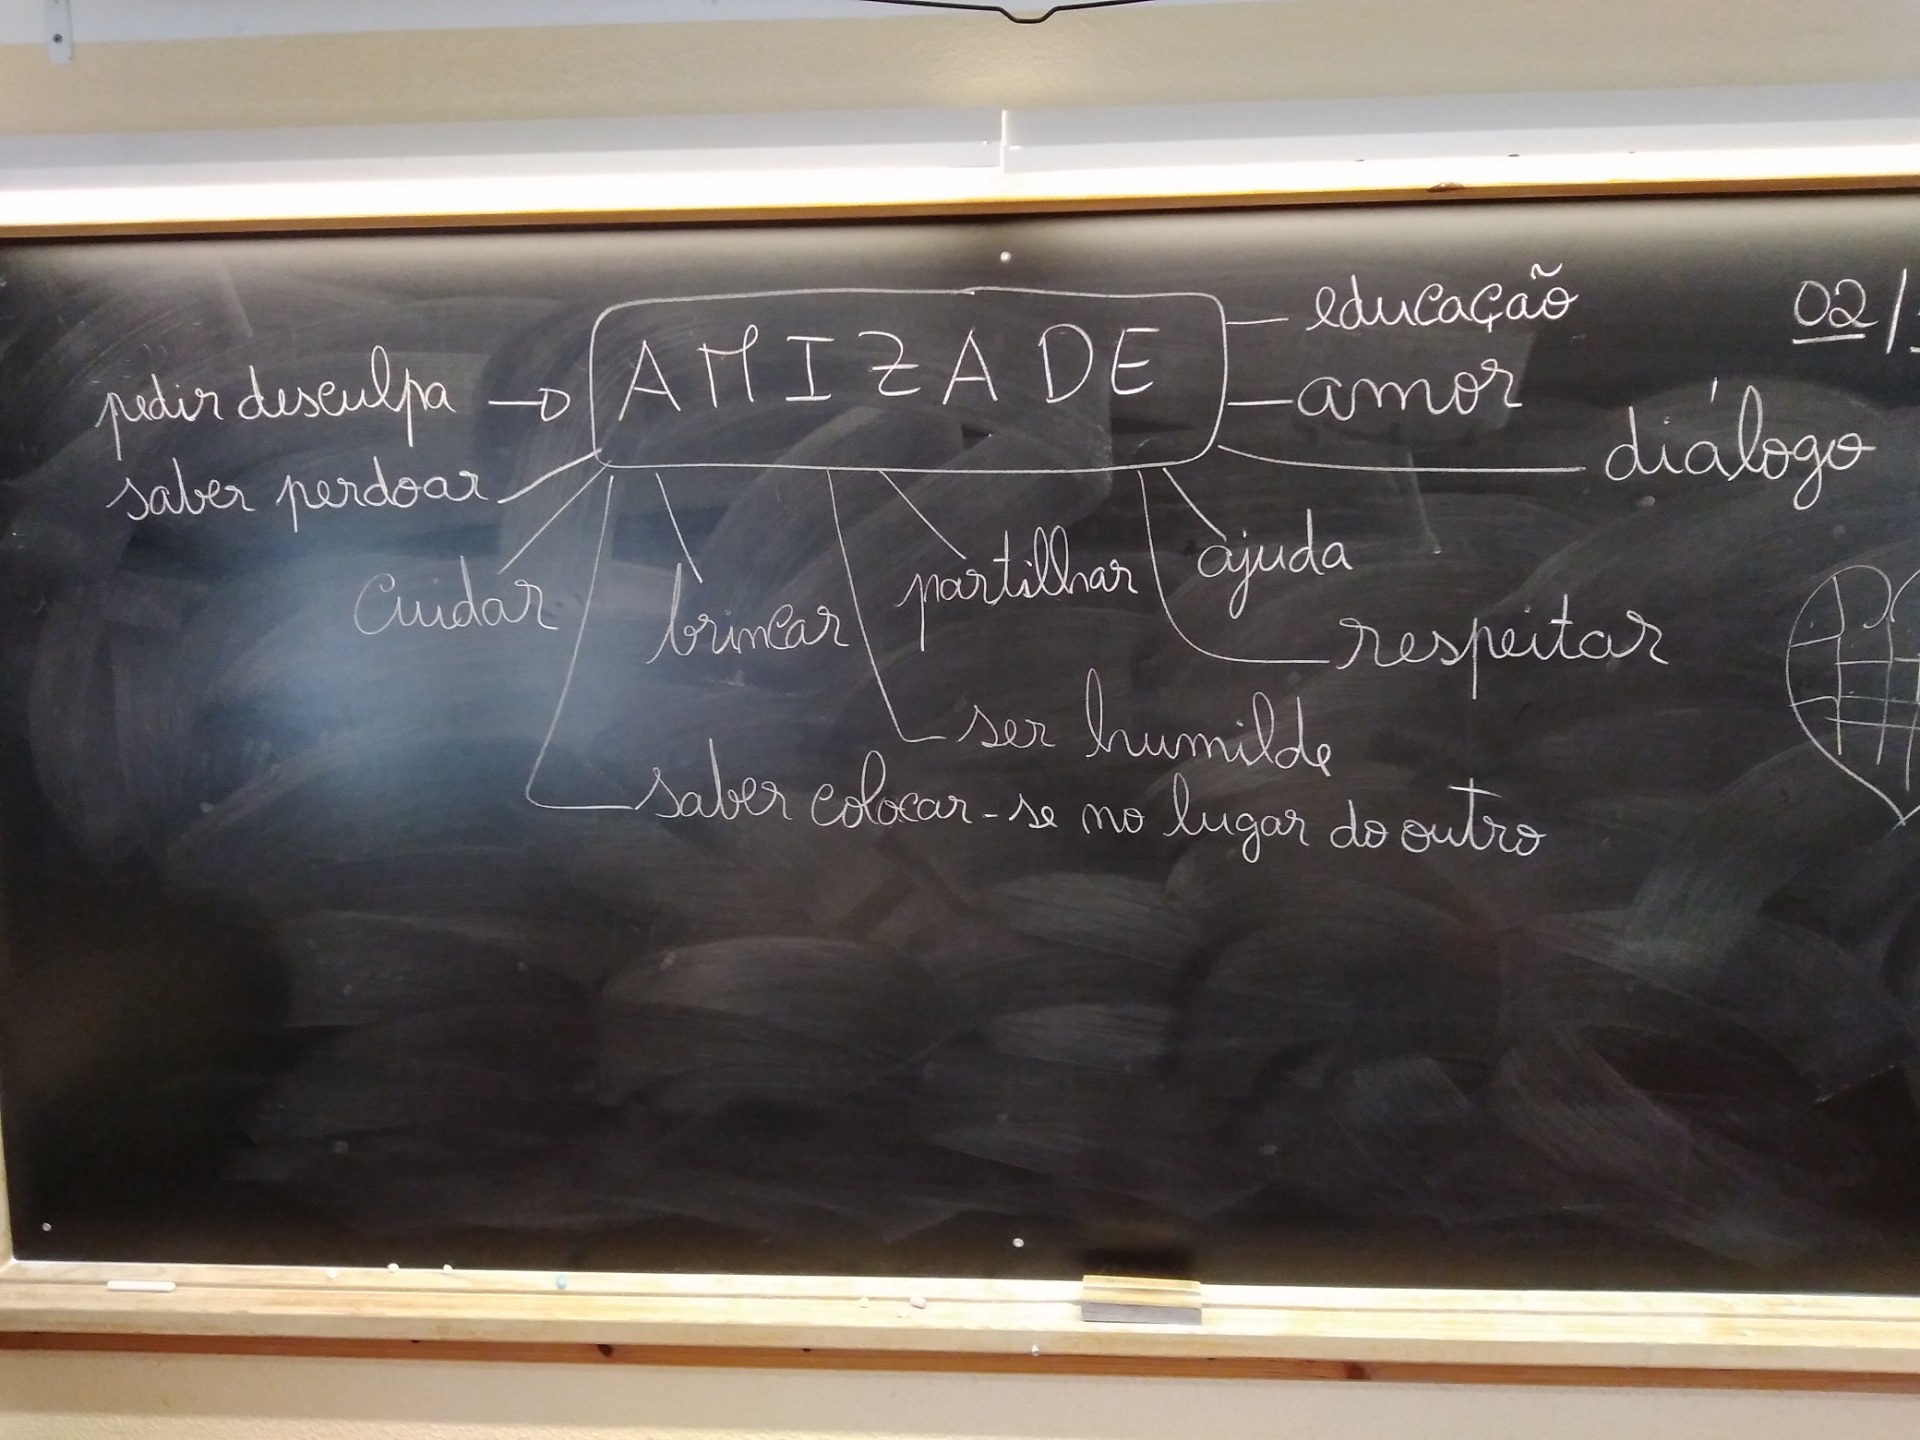 AMIZADE
educação
02/
pedir desculpa
amor
diálogo
saber perdoar
cuidar
brincar
partilhar
ajuda
respeitar
ser humilde
saber colocar-se no lugar do outro